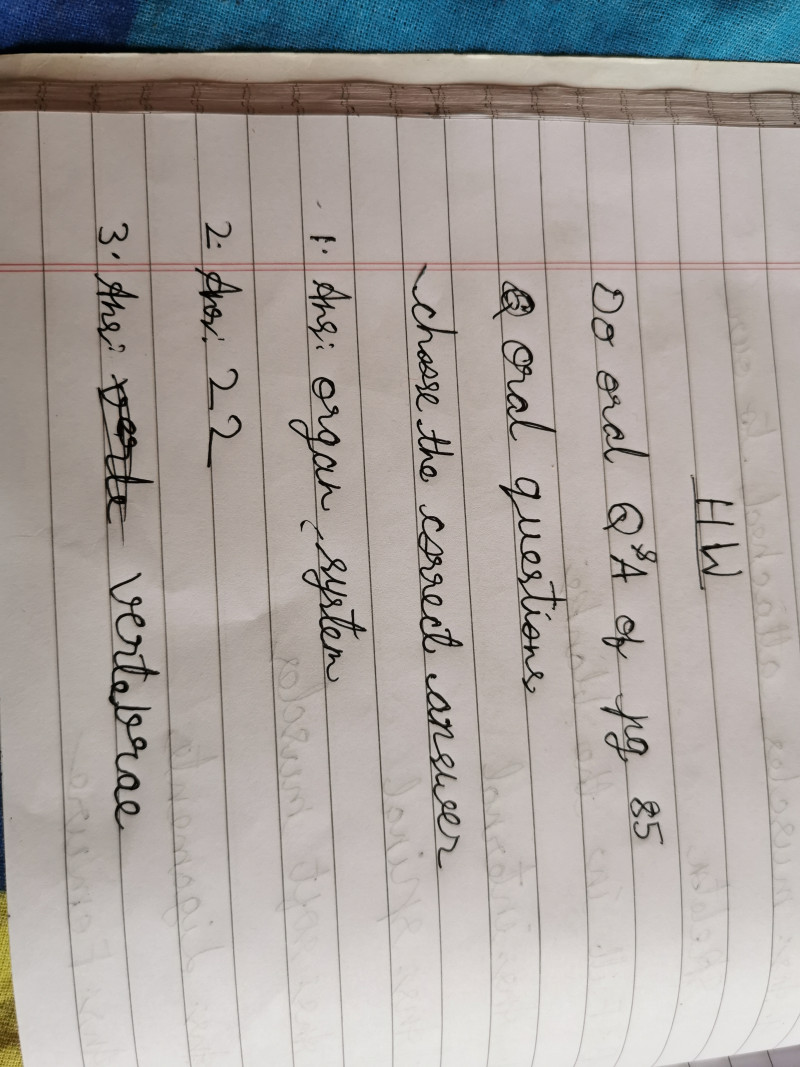 HW
Do oral Q&A of pg 85
Oral questions
choose the correct answer
1. Ans: organ system
2. Ans: 22
3. Ans: verte vertebrae